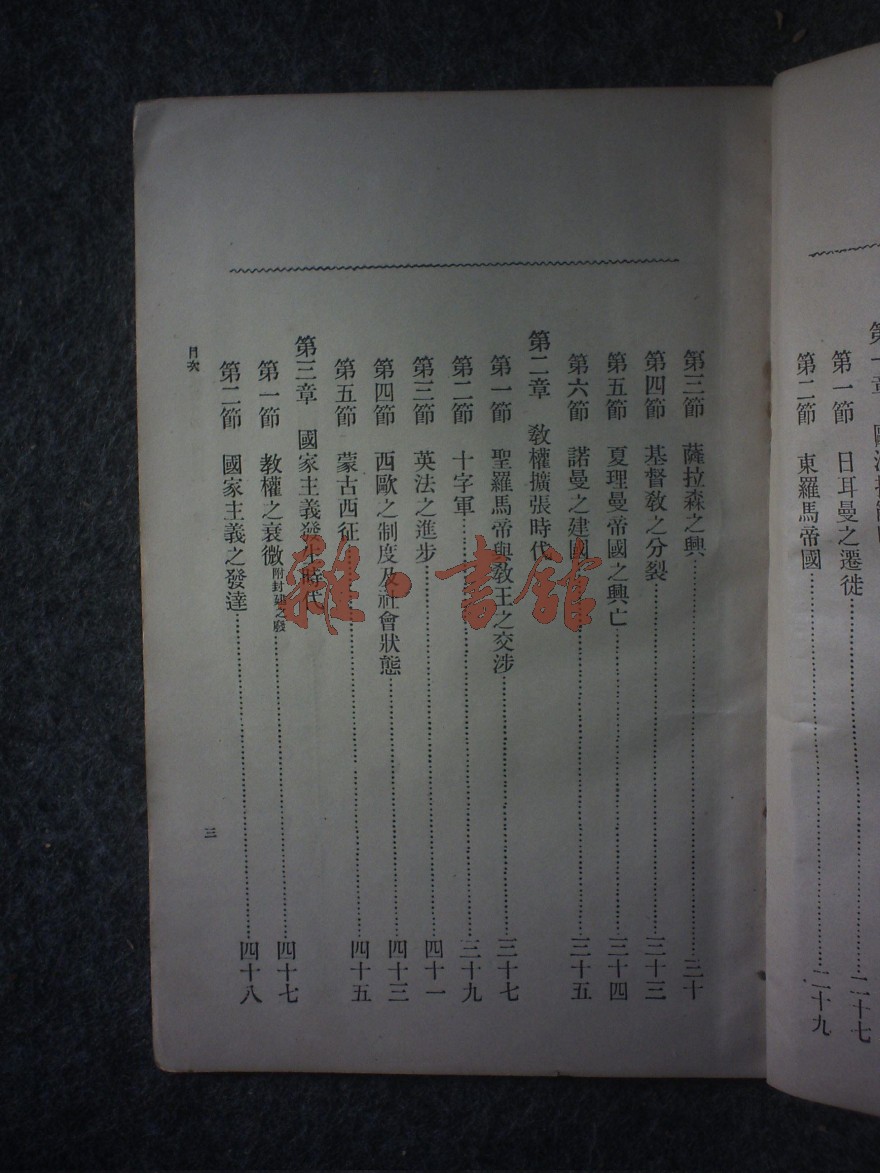 第一節　日耳曼之遷徙……二十七
第二節　東羅馬帝國……二十九
第三節　薩拉森之興……三十
第四節　基督敎之分裂……三十三
第五節　夏理曼帝國之興亡……三十四
第六節　諾曼之建國……三十五
第二章　敎權擴張時代
第一節　聖羅馬帝與敎王之交涉……三十七
第二節　十字軍……三十九
第三節　英法之進步……四十一
第四節　西歐之制度及社會狀態……四十三
第五節　蒙古西征……四十五
第三章　國家主義發生時代
第一節　敎權之衰微附封建之廢……四十七
第二節　國家主義之發達……四十八
目次
三
雜·書館